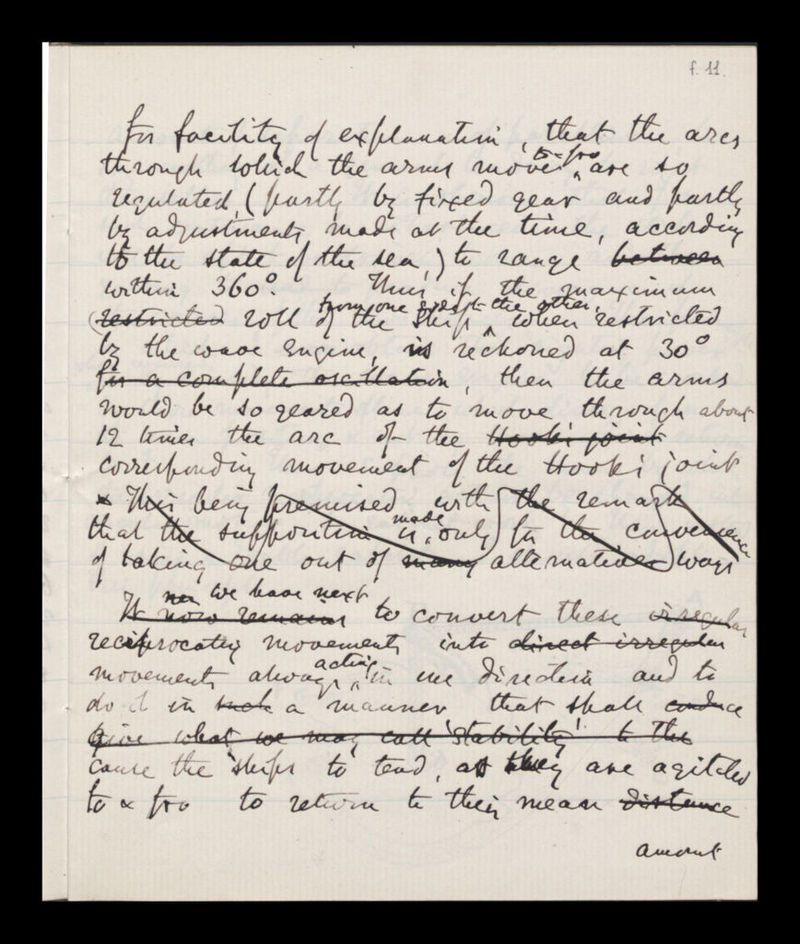 f. 11.
For facility of explanation, that the arcs
through which the arms move to & fro are so
regulated, (partly by fixed gear and partly
by adjustments made at the time, according
to the state of the sea,) to range between
within 360°. Thus if the maximum
restricted roll of the ship from one crest to the other, when restricted
by the wave engine, is reckoned at 30°
for a complete oscillation, then the arms
would be so geared as to move through about
12 times the arc of the Hooks joint
corresponding movement of the Hooks joint
This being premised with the remark
that the supposition is made only for the convenience
of taking one out of many alternative ways
It now remains we have next to convert these irregular
reciprocating movements into direct irregular
movements always acting in one direction and to
do it in such a manner that shall conduce
give what we may call 'stability' to the
cause the ships to tend, as they are agitated
to & fro to return to their mean distance
amount